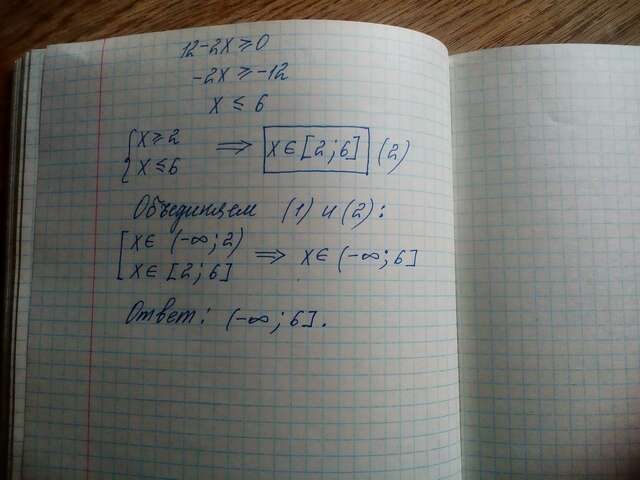 12-2x≥0
-2x≥-12
x≤6
{x≥2
{x≤6 ⟹ x∈[2;6] (2)
Объединяем (1) и (2):
[x∈(-∞;2)
[x∈[2;6] ⟹ x∈(-∞;6]
Ответ: (-∞;6].